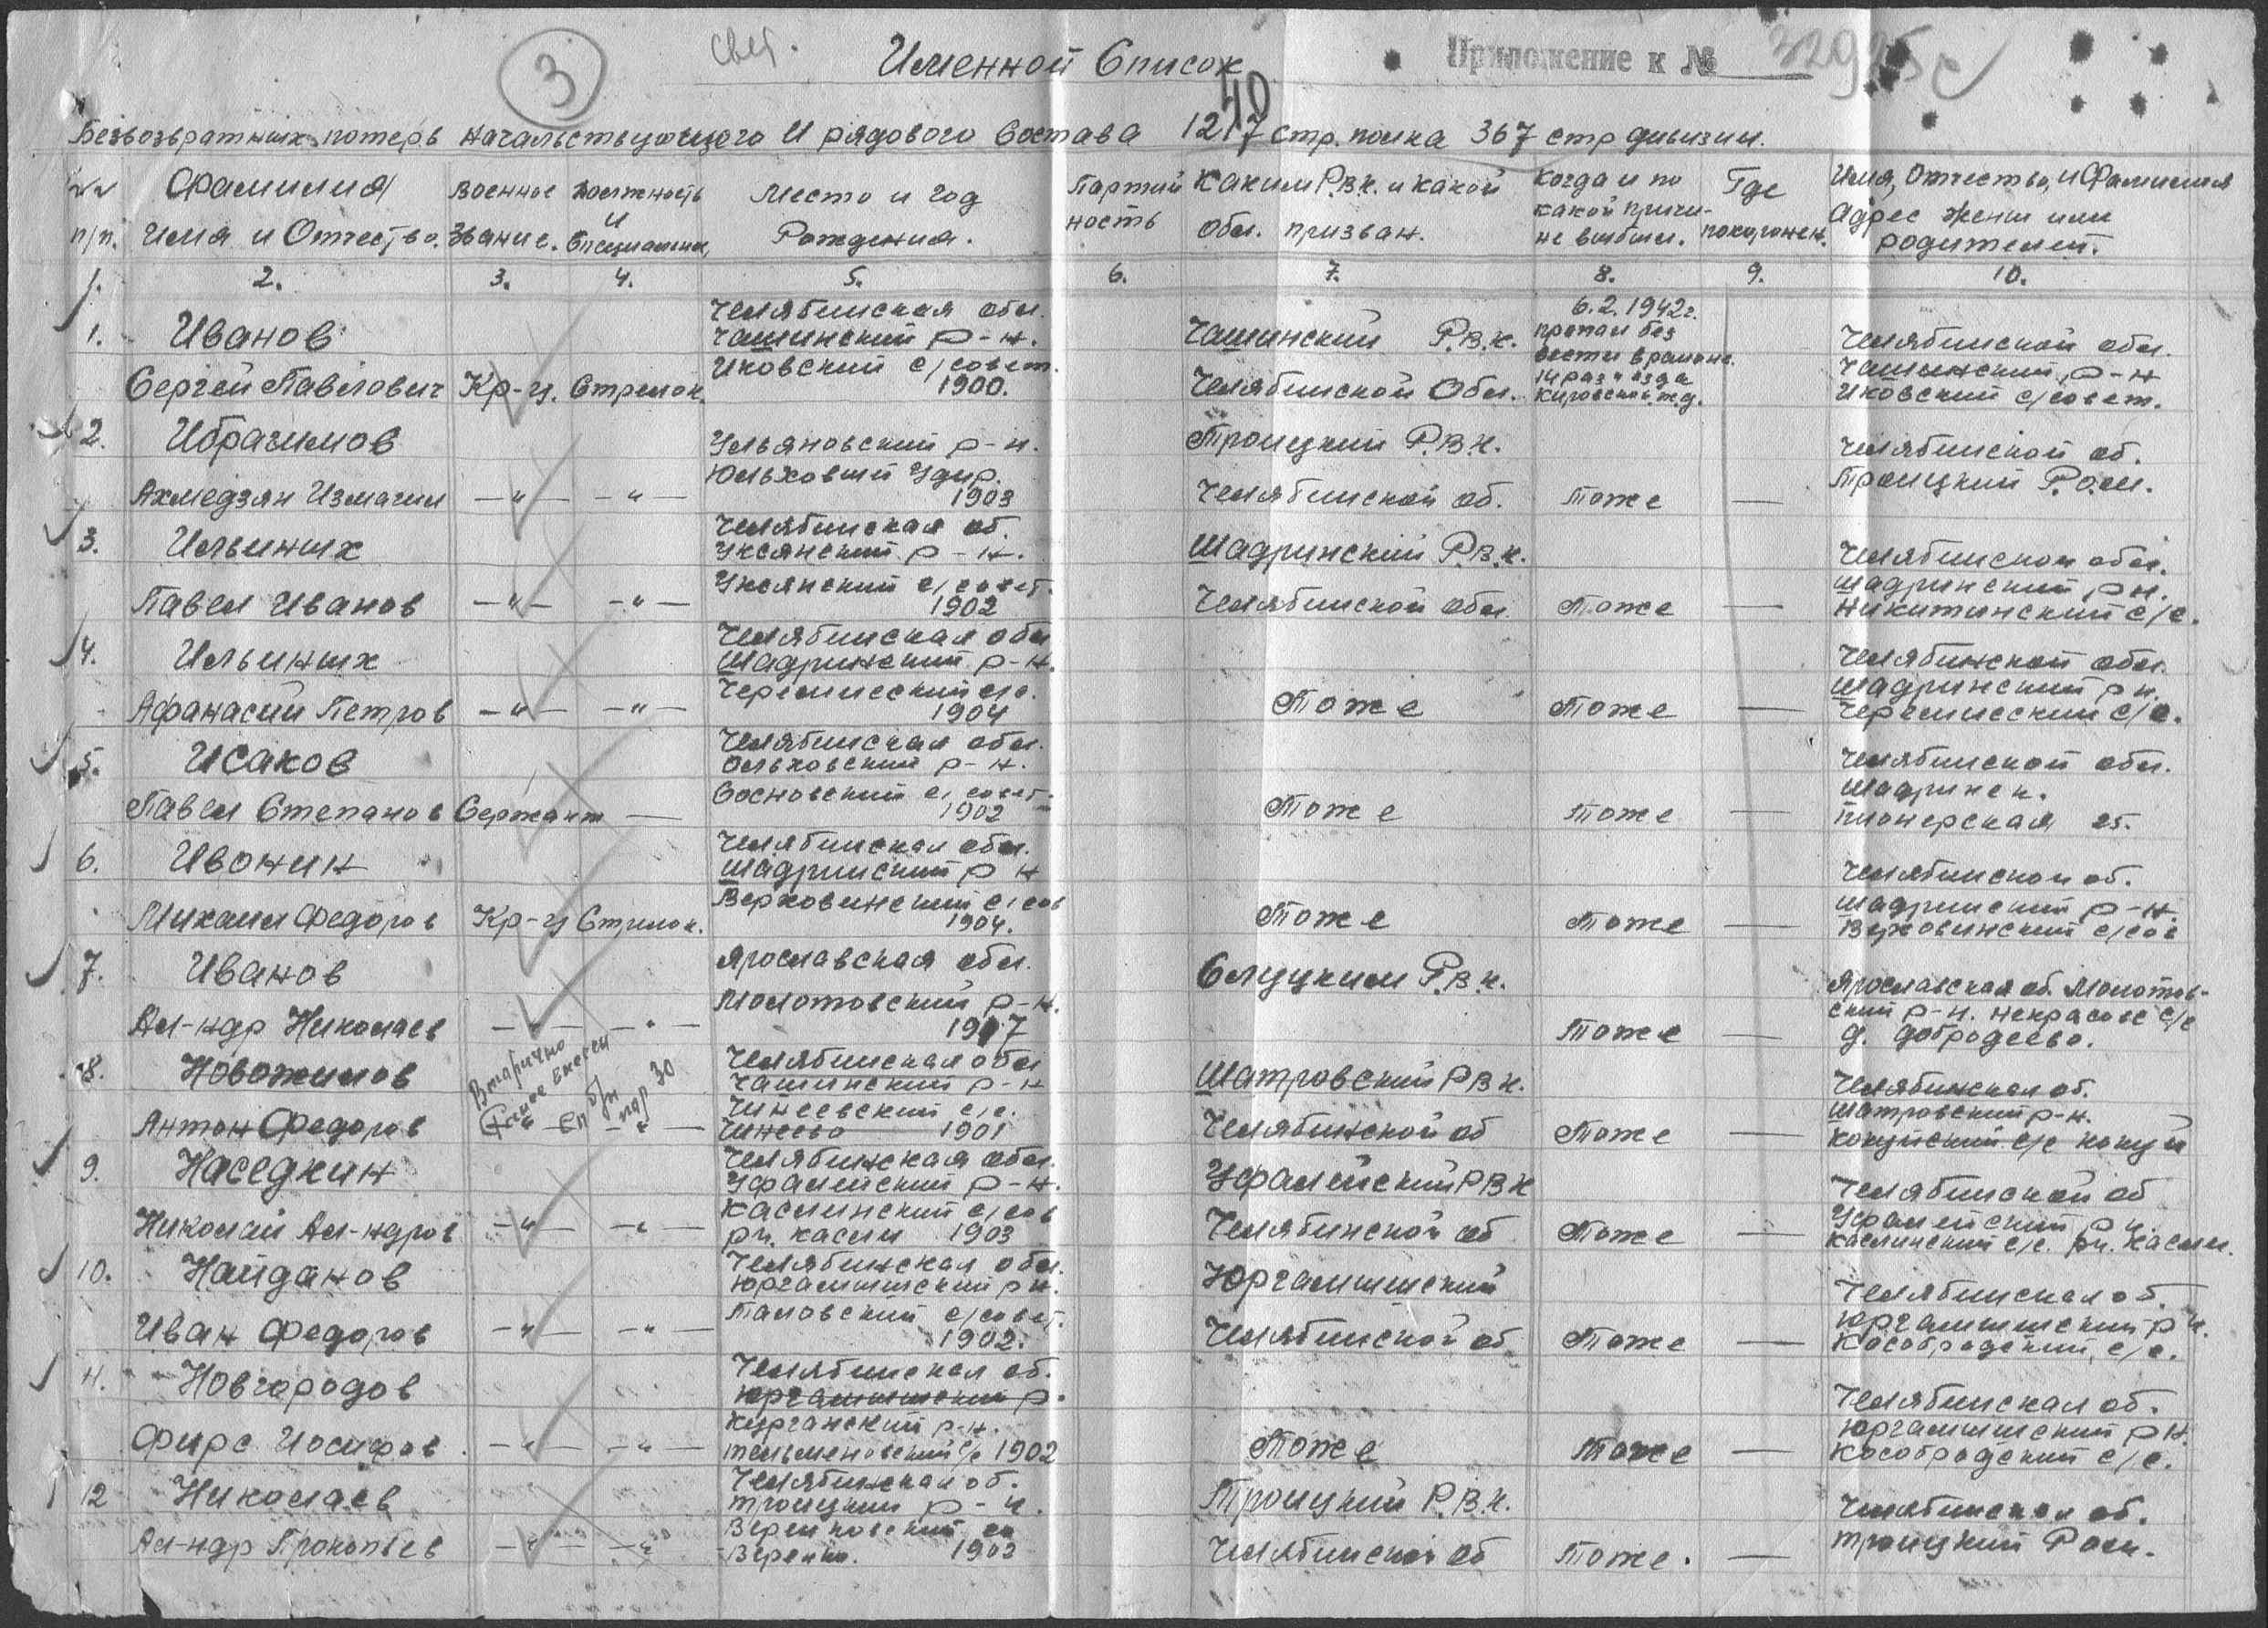 3
Именной Список
Приложение к № 32925с
40
Безвозвратных потерь начальствующего и рядового состава 1217 стр. полка 367 стр дивизии.
п/п. Фамилия Имя и Отчество. Военное Звание. Должность и Специальн. Место и год Рождения. Партийность Каким Р.В.К. и какой Обл. призван. Когда и по какой причине выбыл. Где похоронен. Имя, Отчество, и Фамилия Адрес жены или родителей.
1. 2. 3. 4. 5. 6. 7. 8. 9. 10.
1. Иванов Сергей Павлович Кр-ц. Стрелок. Челябинская обл. Чашинский р-н. Иковский с/совет. 1900. Чашинский Р.В.К. Челябинской Обл. 6.2.1942г. пропал без вести в районе 14 разъезда Кировской ж.д. Челябинской обл. Чашинский р-н Иковский с/совет.
2. Ибрагимов Ахмедзян Измагил —"— —"— Ульяновский р-н. 1903 Троицкий Р.В.К. Челябинской об. тоже — Челябинской об. Троицкий Р.о.м.
3. Ильиных Павел Иванов —"— —"— Челябинская об. Уксянский р-н. Уксянский с/совет. 1902 Шадринский Р.В.К. Челябинской обл. тоже — Челябинской обл. Шадринский рн. Никитинский с/с.
4. Ильиных Афанасий Петров —"— —"— Челябинская обл Шадринский р-н. Черемисский с/с. 1904 тоже тоже — Челябинской обл. Шадринский рн. Черемисский с/с.
5. Исаков Павел Степанов Сержант — Челябинская обл. Ольховский р-н. Сосновский с/совет. 1902 тоже тоже — Челябинской обл. Шадринск. Пионерская 25.
6. Ивонин Михаил Федоров Кр-ц Стрелок. Челябинская обл. Шадринский р н Верховинский с/сов 1904. тоже тоже — Челябинской об. Шадринский р-н. Верховинский с/сов
7. Иванов Ал-ндр Николаев —"— —"— Ярославская обл. Молотовский р-н. 1917 Слуцким Р.В.К. тоже — Ярославская об. Молотовский р-н. Некрасове с/с д. Добродеево.
8. Новожилов Антон Федоров Вторично Челябинская обл Чашинский р-н Чинеевский с/с. Чинеево 1901 Шатровский РВК. Челябинской об тоже — Челябинская об. Шатровский р-н. Кокуйский с/с Кокуй
9. Наседкин Николай Ал-ндров —"— —"— Челябинская обл. Уфалейский р-н. Каслинский с/сов рн. Касли 1903 Уфалейский РВК Челябинской об тоже — Челябинской об Уфалейский рн. Каслинский с/с. рн. Касли.
10. Найданов Иван Федоров —"— —"— Челябинская обл. Юргамышский рн. Таловский с/совет. 1902. Юргамышский Челябинской об тоже — Челябинская об. Юргамышский рн. Кособродский с/с.
11. Новгородов Фирс Иосифов —"— —"— Челябинская об. Юргамышский р. Курганский р-н. тельменовский с/с 1902 тоже тоже — Челябинская об. Юргамышский рн. Кособродский с/с.
12 Николаев Ал-ндр Прокопьев —"— —"— Челябинская об. Троицкий р-н. 1902 Троицкий Р.В.К. Челябинской об тоже. — Челябинская об. Троицкий Ром.